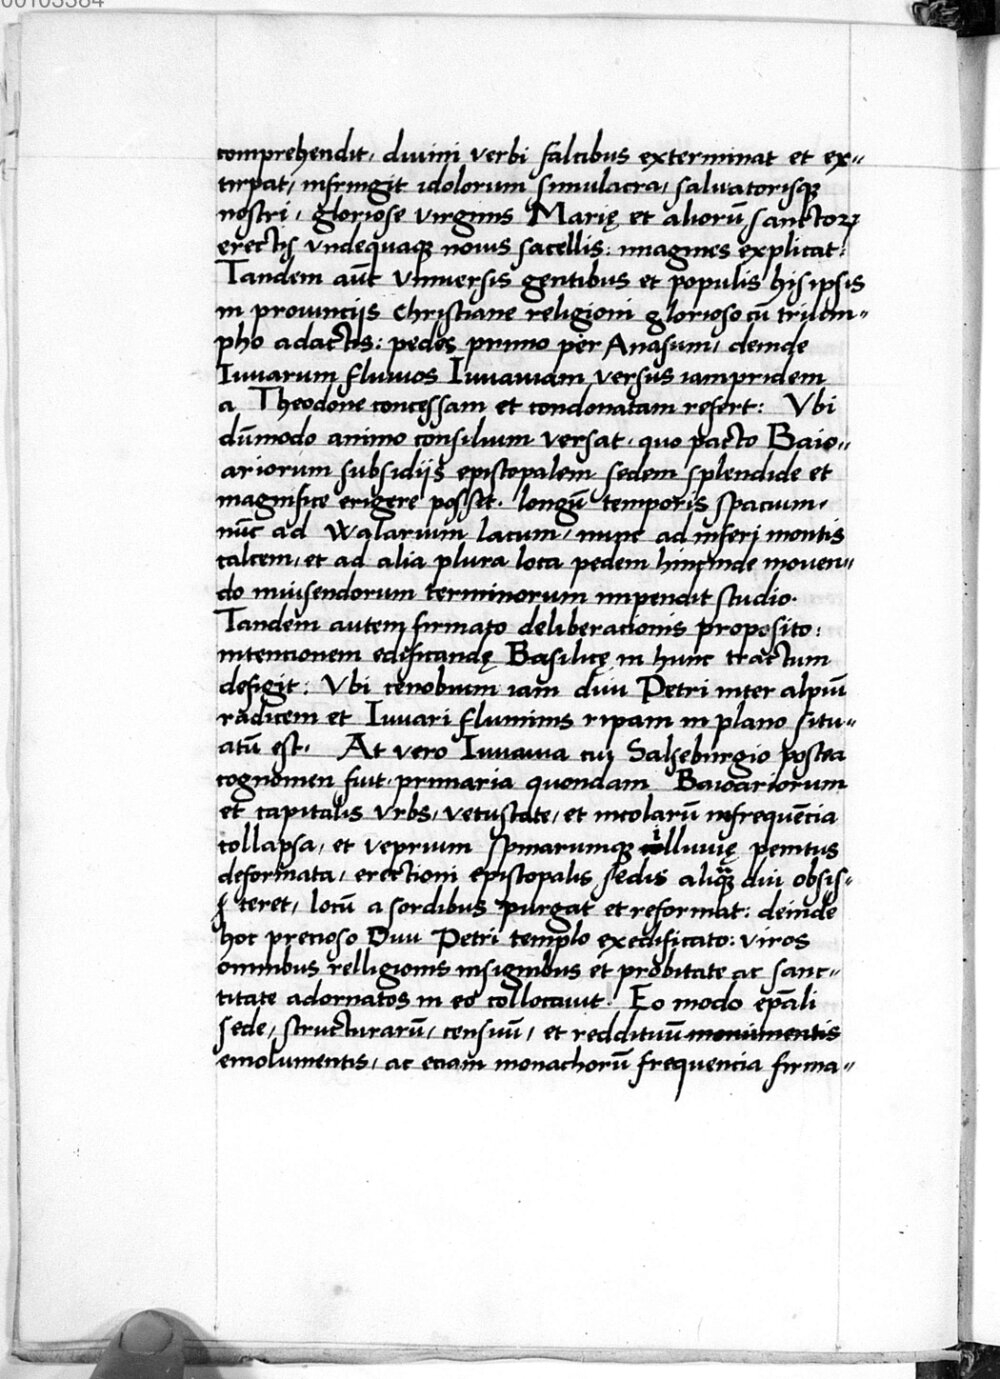 00103384
comprehendit, diuini verbi falcibus exterminat et ex-
tirpat, infringit idolorum simulacra, saluatorisqꝫ
nostri, gloriose virginis Marię et aliorū sanctoꝝ
erectis vndequaqꝫ nouis sacellis: imagines explicat:
Tandem aūt vniuersis gentibus et populis hisipsis
in prouincijs christiane religioni glorioso cū trium-
pho adactis: pedes primo per Anasum, deinde
Iuuarum fluuios Iuuauiam versus iampridem
a Theodone concessam et condonatam refert: Vbi
dūmodo animo consilium versat, quo pacto Baio-
ariorum subsidijs episcopalem sedem splendide et
magnifice erigere posset. longū temporis spacium,
nūc ad Walarium lacum, nunc ad inferi montis
calcem, et ad alia plura loca pedem hincinde mouen-
do inuisendorum terminorum impendit studio.
Tandem autem firmato deliberacionis proposito:
intencionem edificandę Basilicę in hunc tractum
defigit: Vbi cenobium iam diui Petri inter alpiū
radicem et Iuuari fluminis ripam in plano situ-
atū est. At vero Iuuauia cui Salzeburgio postea
cognomen fuit, primaria quondam Baioariorum
et capitalis vrbs, vetustate, et incolarū infrequēcia
collapsa, et veprium spinarumqꝫ illuuię penitus
deformata, erectioni episcopalis sedis aliqꝫ diu obsis-
teret, locū a sordibus purgat et reformat: deinde
hoc precioso Diui Petri templo exedificato: viros
omnibus relligionis insignibus et probitate ac sanc-
titate adornatos in eo collocauit. Eo modo ep̄ali
sede, structurarū, censuū, et reddituū monimentis
emolumentis, ac eciam monachorū frequencia firma-